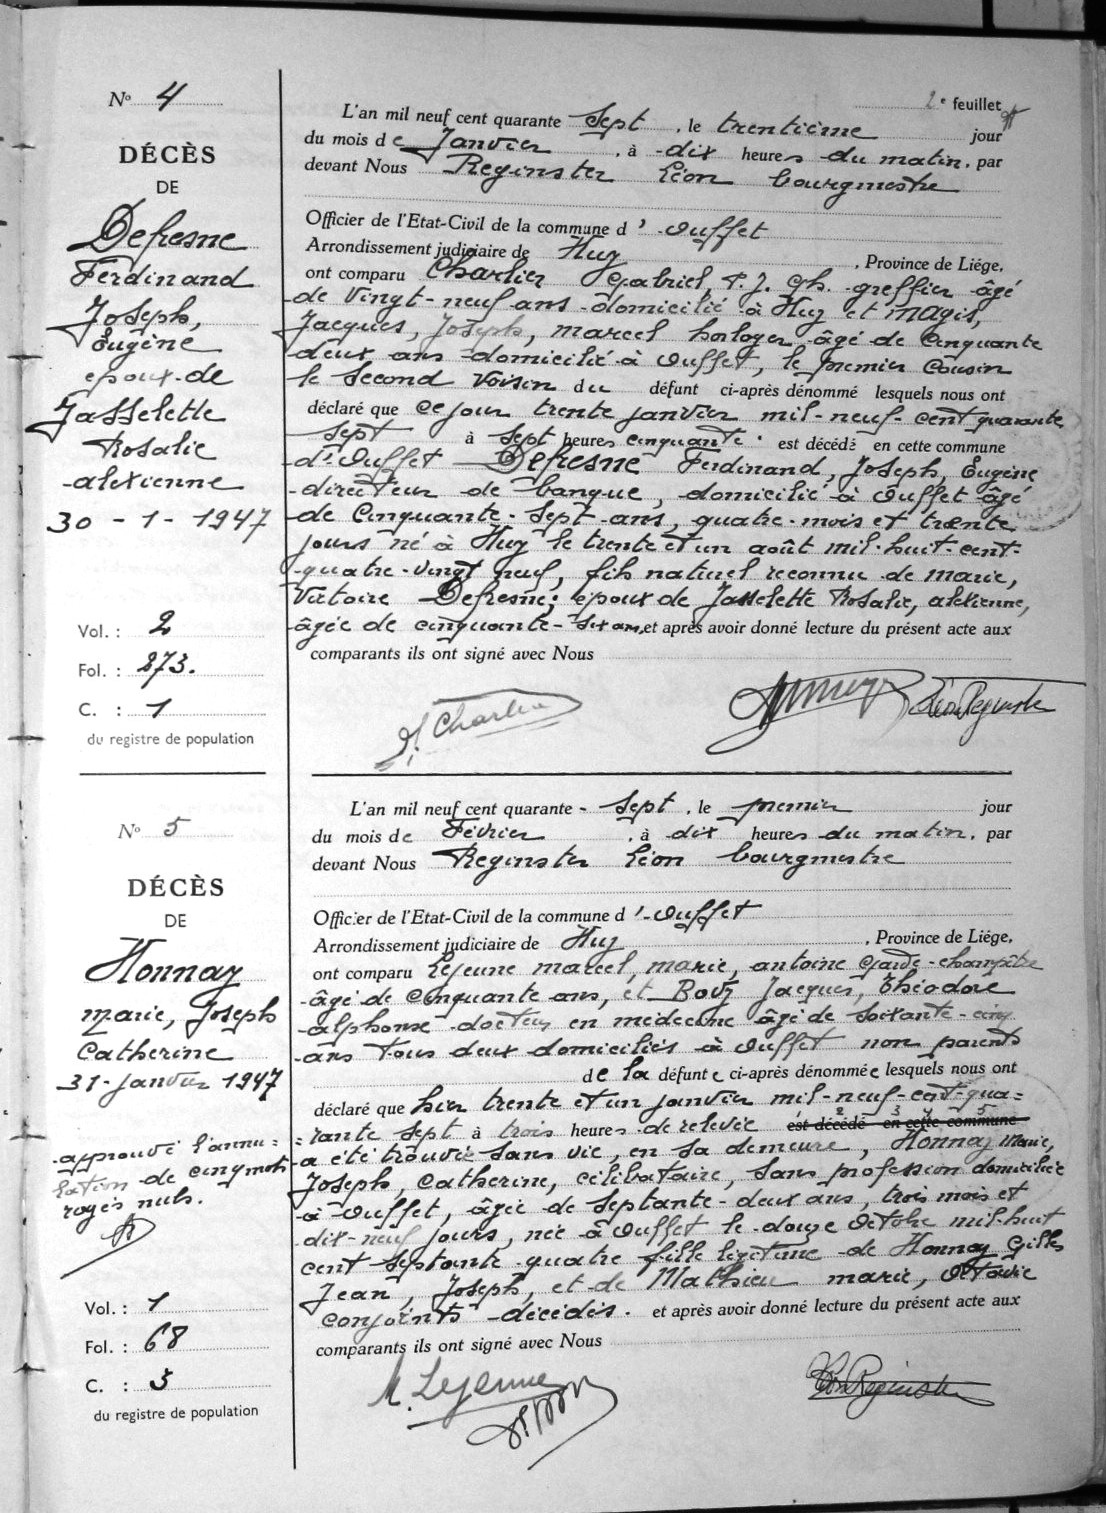 2e feuillet
No 4
DÉCÈS
DE
Defresne
Ferdinand
Joseph,
Eugène
époux de
Jasselette
Rosalie
alexienne
30 - 1 - 1947
Vol. : 2
Fol. : 273.
C. : 1
du registre de population
L'an mil neuf cent quarante Sept, le trentième jour
du mois de Janvier, à dix heures du matin, par
devant Nous Reginster Léon bourgmestre
Officier de l'Etat-Civil de la commune d'Ouffet
Arrondissement judiciaire de Huy, Province de Liége,
ont comparu Charlier Gabriel, F. J. Gh. greffier âgé
de vingt-neuf ans domicilié à Huy et Magis,
Jacques, Joseph, marcel horloger âgé de Cinquante
deux ans domicilié à Ouffet, le premier Cousin
le Second Voisin du défunt ci-après dénommé lesquels nous ont
déclaré que ce jour trente janvier mil-neuf-cent quarante
sept à Sept heures cinquante est décédé en cette commune
d'Ouffet Defresne Ferdinand, Joseph, Eugène
directeur de banque, domicilié à Ouffet âgé
de Cinquante-Sept-ans, quatre-mois et trente
jours né à Huy le trente et un août mil-huit-cent-
quatre-vingt neuf, fils naturel reconnu de Marie,
Victoire Defresne; époux de Jasselette Rosalie, alexienne,
âgée de cinquante-six ans, et après avoir donné lecture du présent acte aux
comparants ils ont signé avec Nous
Charlier
Léon Reginster
No 5
DÉCÈS
DE
Honnay
Marie, Joseph
Catherine
31-janvier 1947
approuvé l'annu=
lation de cinq mots
rayés nuls.
Vol. : 1
Fol. : 68
C. : 3
du registre de population
L'an mil neuf cent quarante-Sept, le premier jour
du mois de Février, à dix heures du matin, par
devant Nous Reginster Léon bourgmestre
Officier de l'Etat-Civil de la commune d'Ouffet
Arrondissement judiciaire de Huy, Province de Liége,
ont comparu Lejeune marcel, marie, antoine Garde-champêtre
âgé de Cinquante ans, et Bovy Jacques, Théodore
alphonse docteur en médecine âgé de Soixante-cinq
ans Tous deux domiciliés à Ouffet non parents
de la défunte ci-après dénommée lesquels nous ont
déclaré que hier trente et un janvier mil-neuf-cent-qua=
=rante Sept à trois heures de relevée est décédé en cette commune
a été trouvée sans vie, en sa demeure, Honnay Marie,
Joseph, Catherine, célibataire, sans profession domiciliée
à Ouffet, âgée de Septante-deux ans, trois mois et
dix-neuf jours, née à Ouffet le douze Octobre mil-huit
cent Septante quatre fille légitime de Honnay Gilles
Jean, Joseph, et de Mathieu marie, Octavie
conjoints décédés. et après avoir donné lecture du présent acte aux
comparants ils ont signé avec Nous
M. Lejeune
Léon Reginster